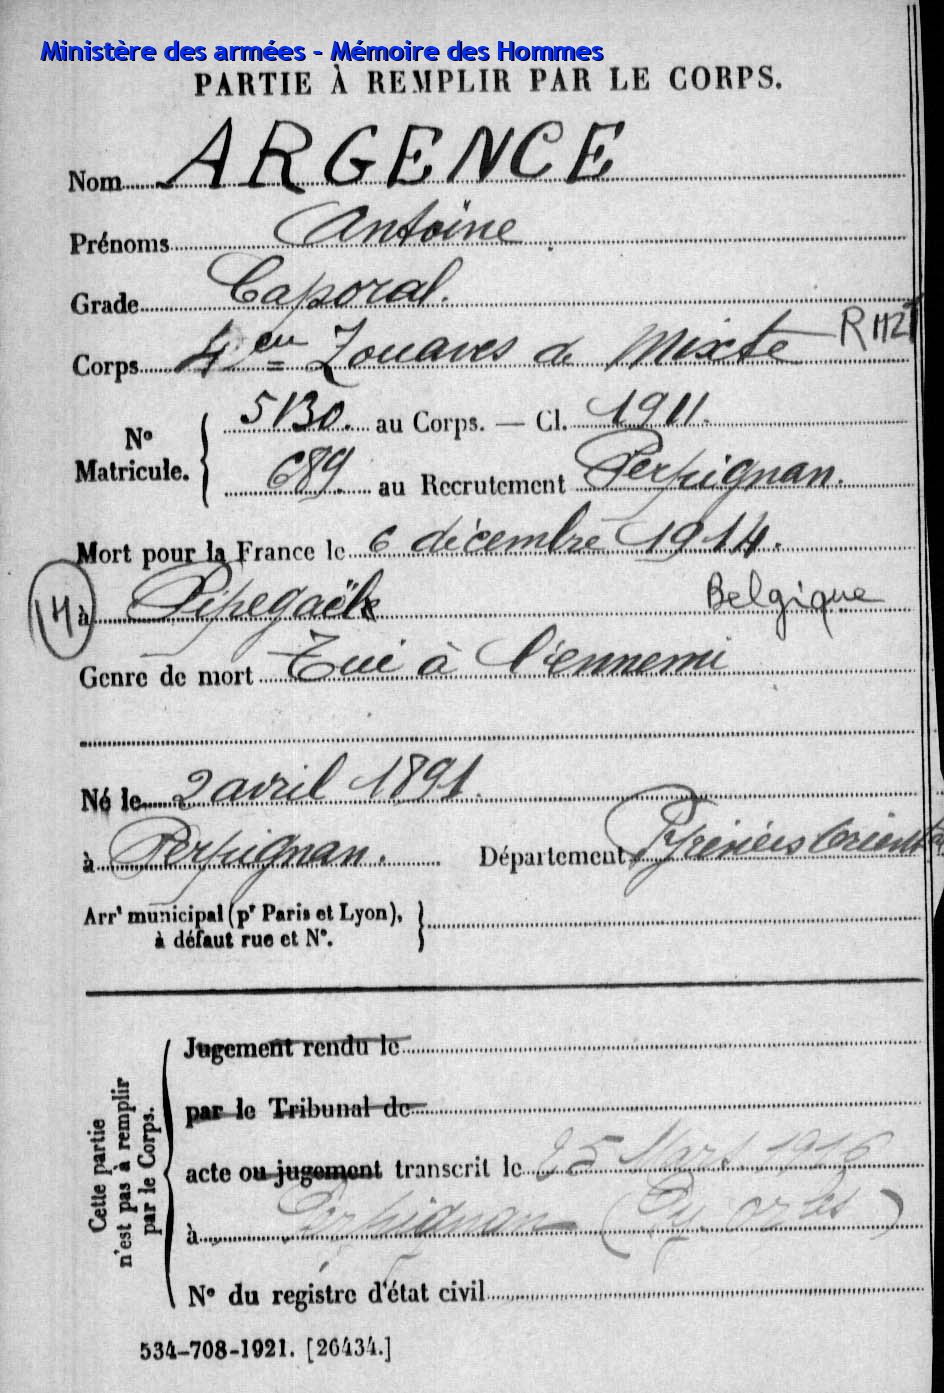 Ministère des armées - Mémoire des Hommes
PARTIE À REMPLIR PAR LE CORPS.
Nom ARGENCE
Prénoms Antoine
Grade Caporal.
Corps 4e Zouaves de Mixte
N° Matricule. { 5130. au Corps. — Cl. 1911.
689. au Recrutement Perpignan.
Mort pour la France le 6 décembre 1914.
à Pipegaële Belgique
Genre de mort Tué à l'ennemi
Né le 2 avril 1891.
à Perpignan. Département Pyrénées Orient
Arrt municipal (pr Paris et Lyon), }
à défaut rue et N°.
Cette partie n'est pas à remplir par le Corps.
Jugement rendu le
par le Tribunal de
acte ou jugement transcrit le 25 Mars 1916
à Perpignan (Py. orles)
N° du registre d'état civil
534-708-1921. [26434.]